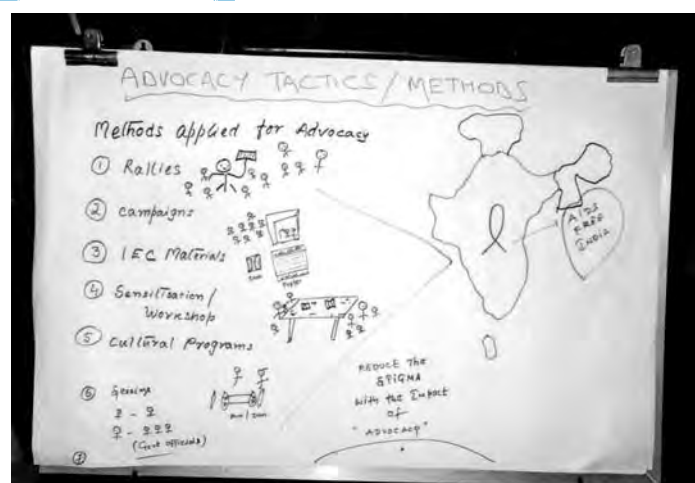 ADVOCACY TACTICS / METHODS
Methods applied for Advocacy
① Rallies
② Campaigns
③ IEC Materials
④ Sensitisation /
Workshop
⑤ Cultural Programs
⑥
(Govt officials)
⑦
AIDS
FREE
INDIA
REDUCE The
STIGMA
With the Impact
of
"ADVOCACY"